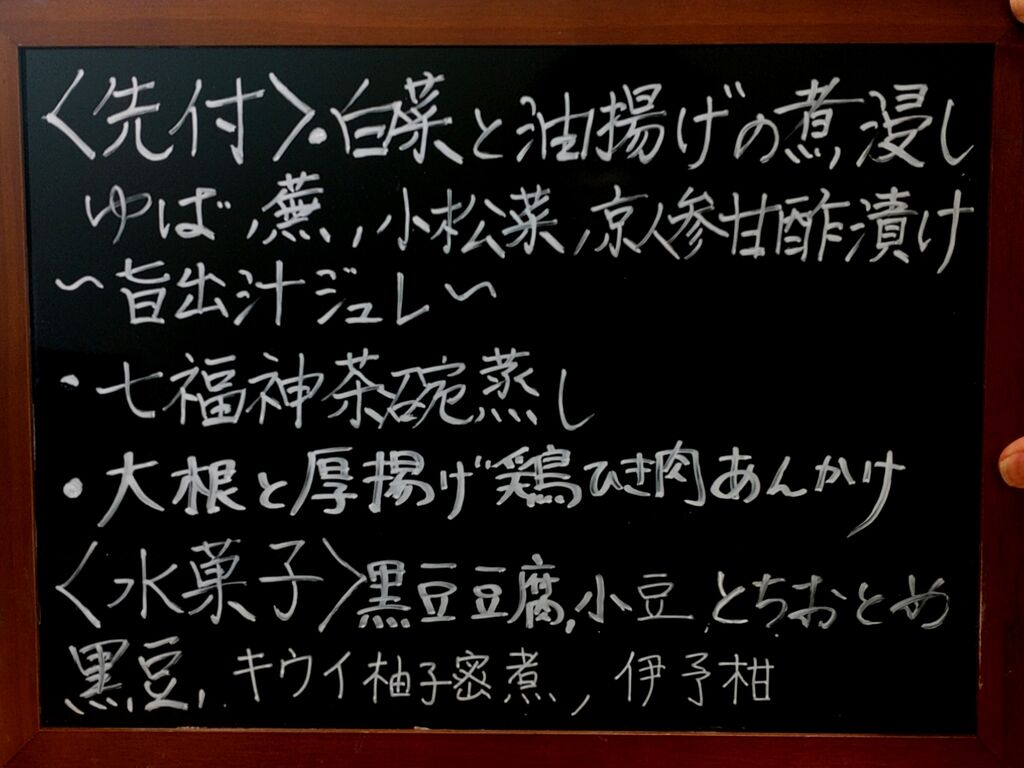 〈先付〉・白菜と油揚げの煮浸し
ゆば,蕪,小松菜,京人参甘酢漬け
~旨出汁ジュレ~
・七福神茶碗蒸し
・大根と厚揚げ鶏ひき肉あんかけ
〈水菓子〉黒豆豆腐,小豆,とちおとめ
黒豆,キウイ柚子密煮,伊予柑